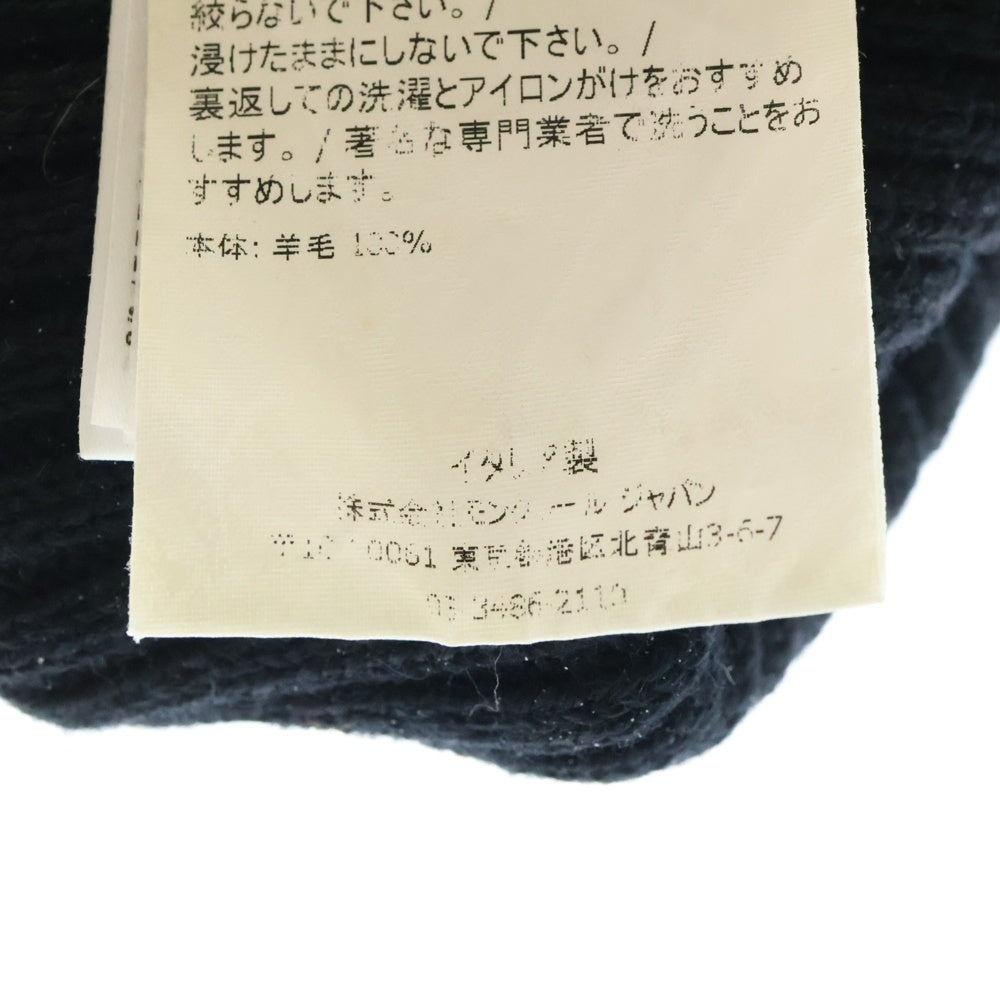 絞らないで下さい。/
浸けたままにしないで下さい。/
裏返しての洗濯とアイロンがけをおすすめ
します。/ 著名な専門業者で洗うことをお
すすめします。
本体: 羊毛 100%
イタリア製
株式会社モンクレール ジャパン
東京都港区北青山3-6-7
03 3486 2110